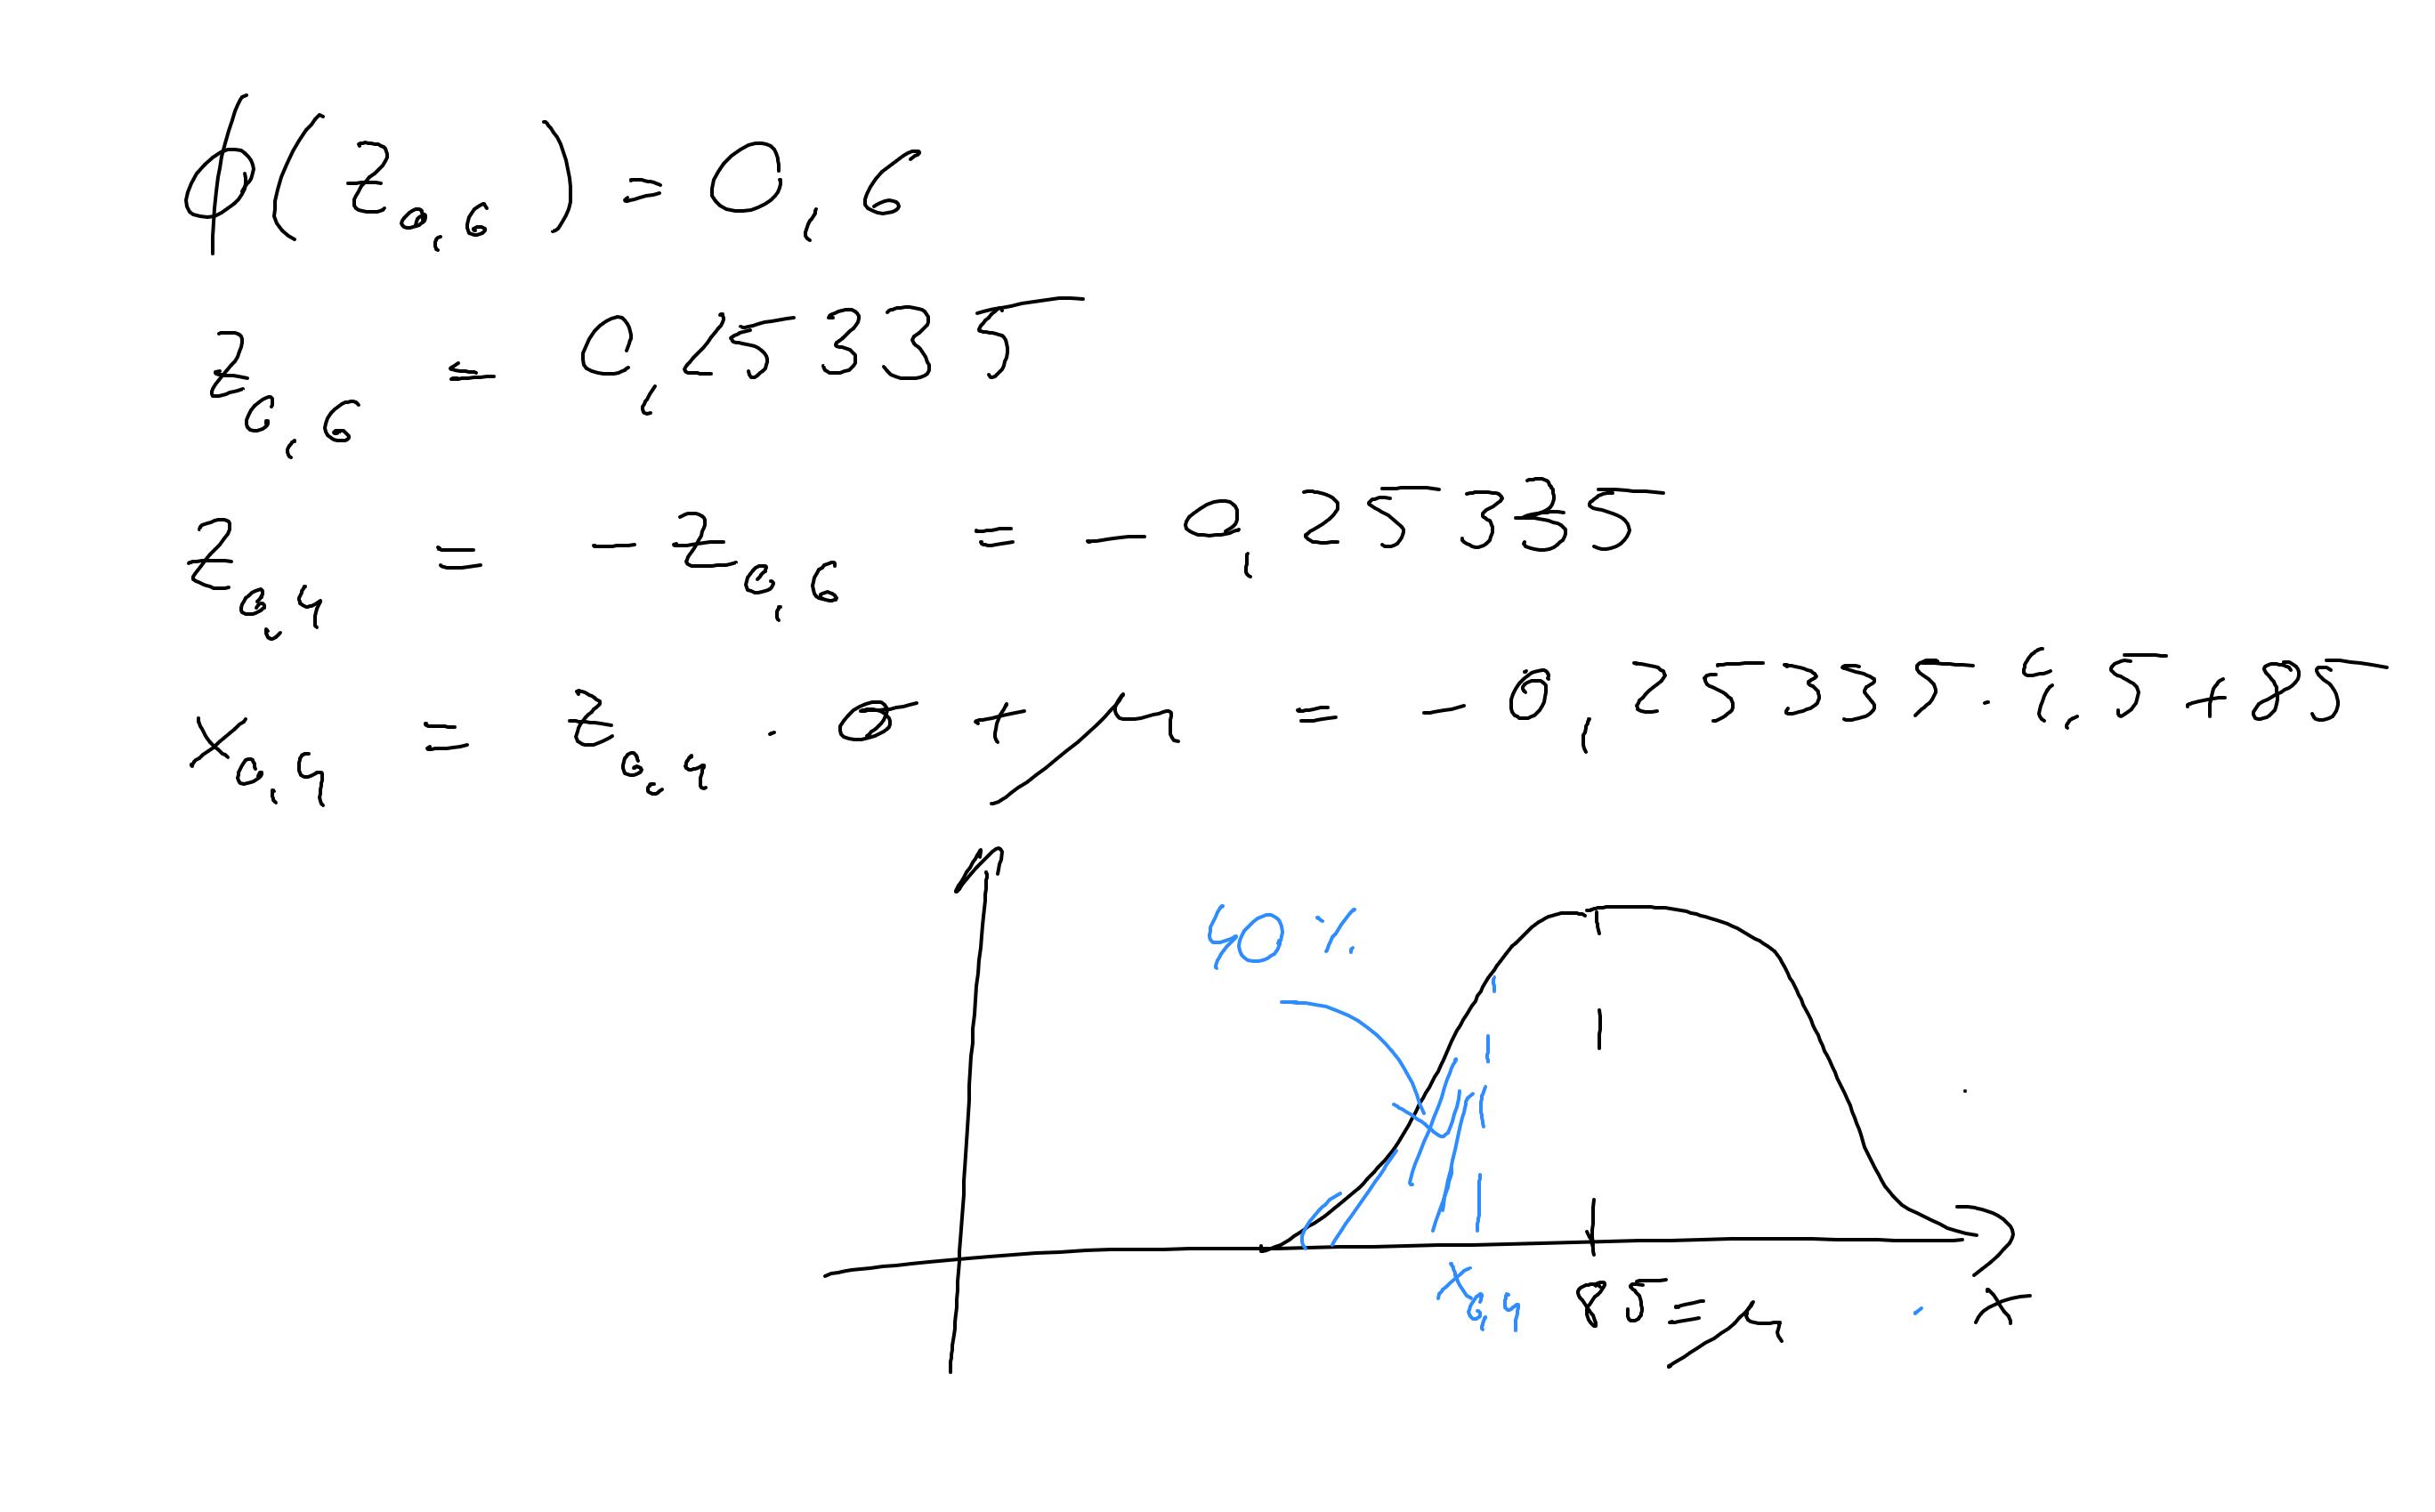 ϕ(z₀,₆) = 0,6
z₀,₆ = 0,25335
z₀,₄ = -z₀,₆ = -0,25335
x₀,₄ = z₀,₄ · σ + μ = -0,25335 · 5,5 + 85
40%
x₀,₄
85 = μ
x